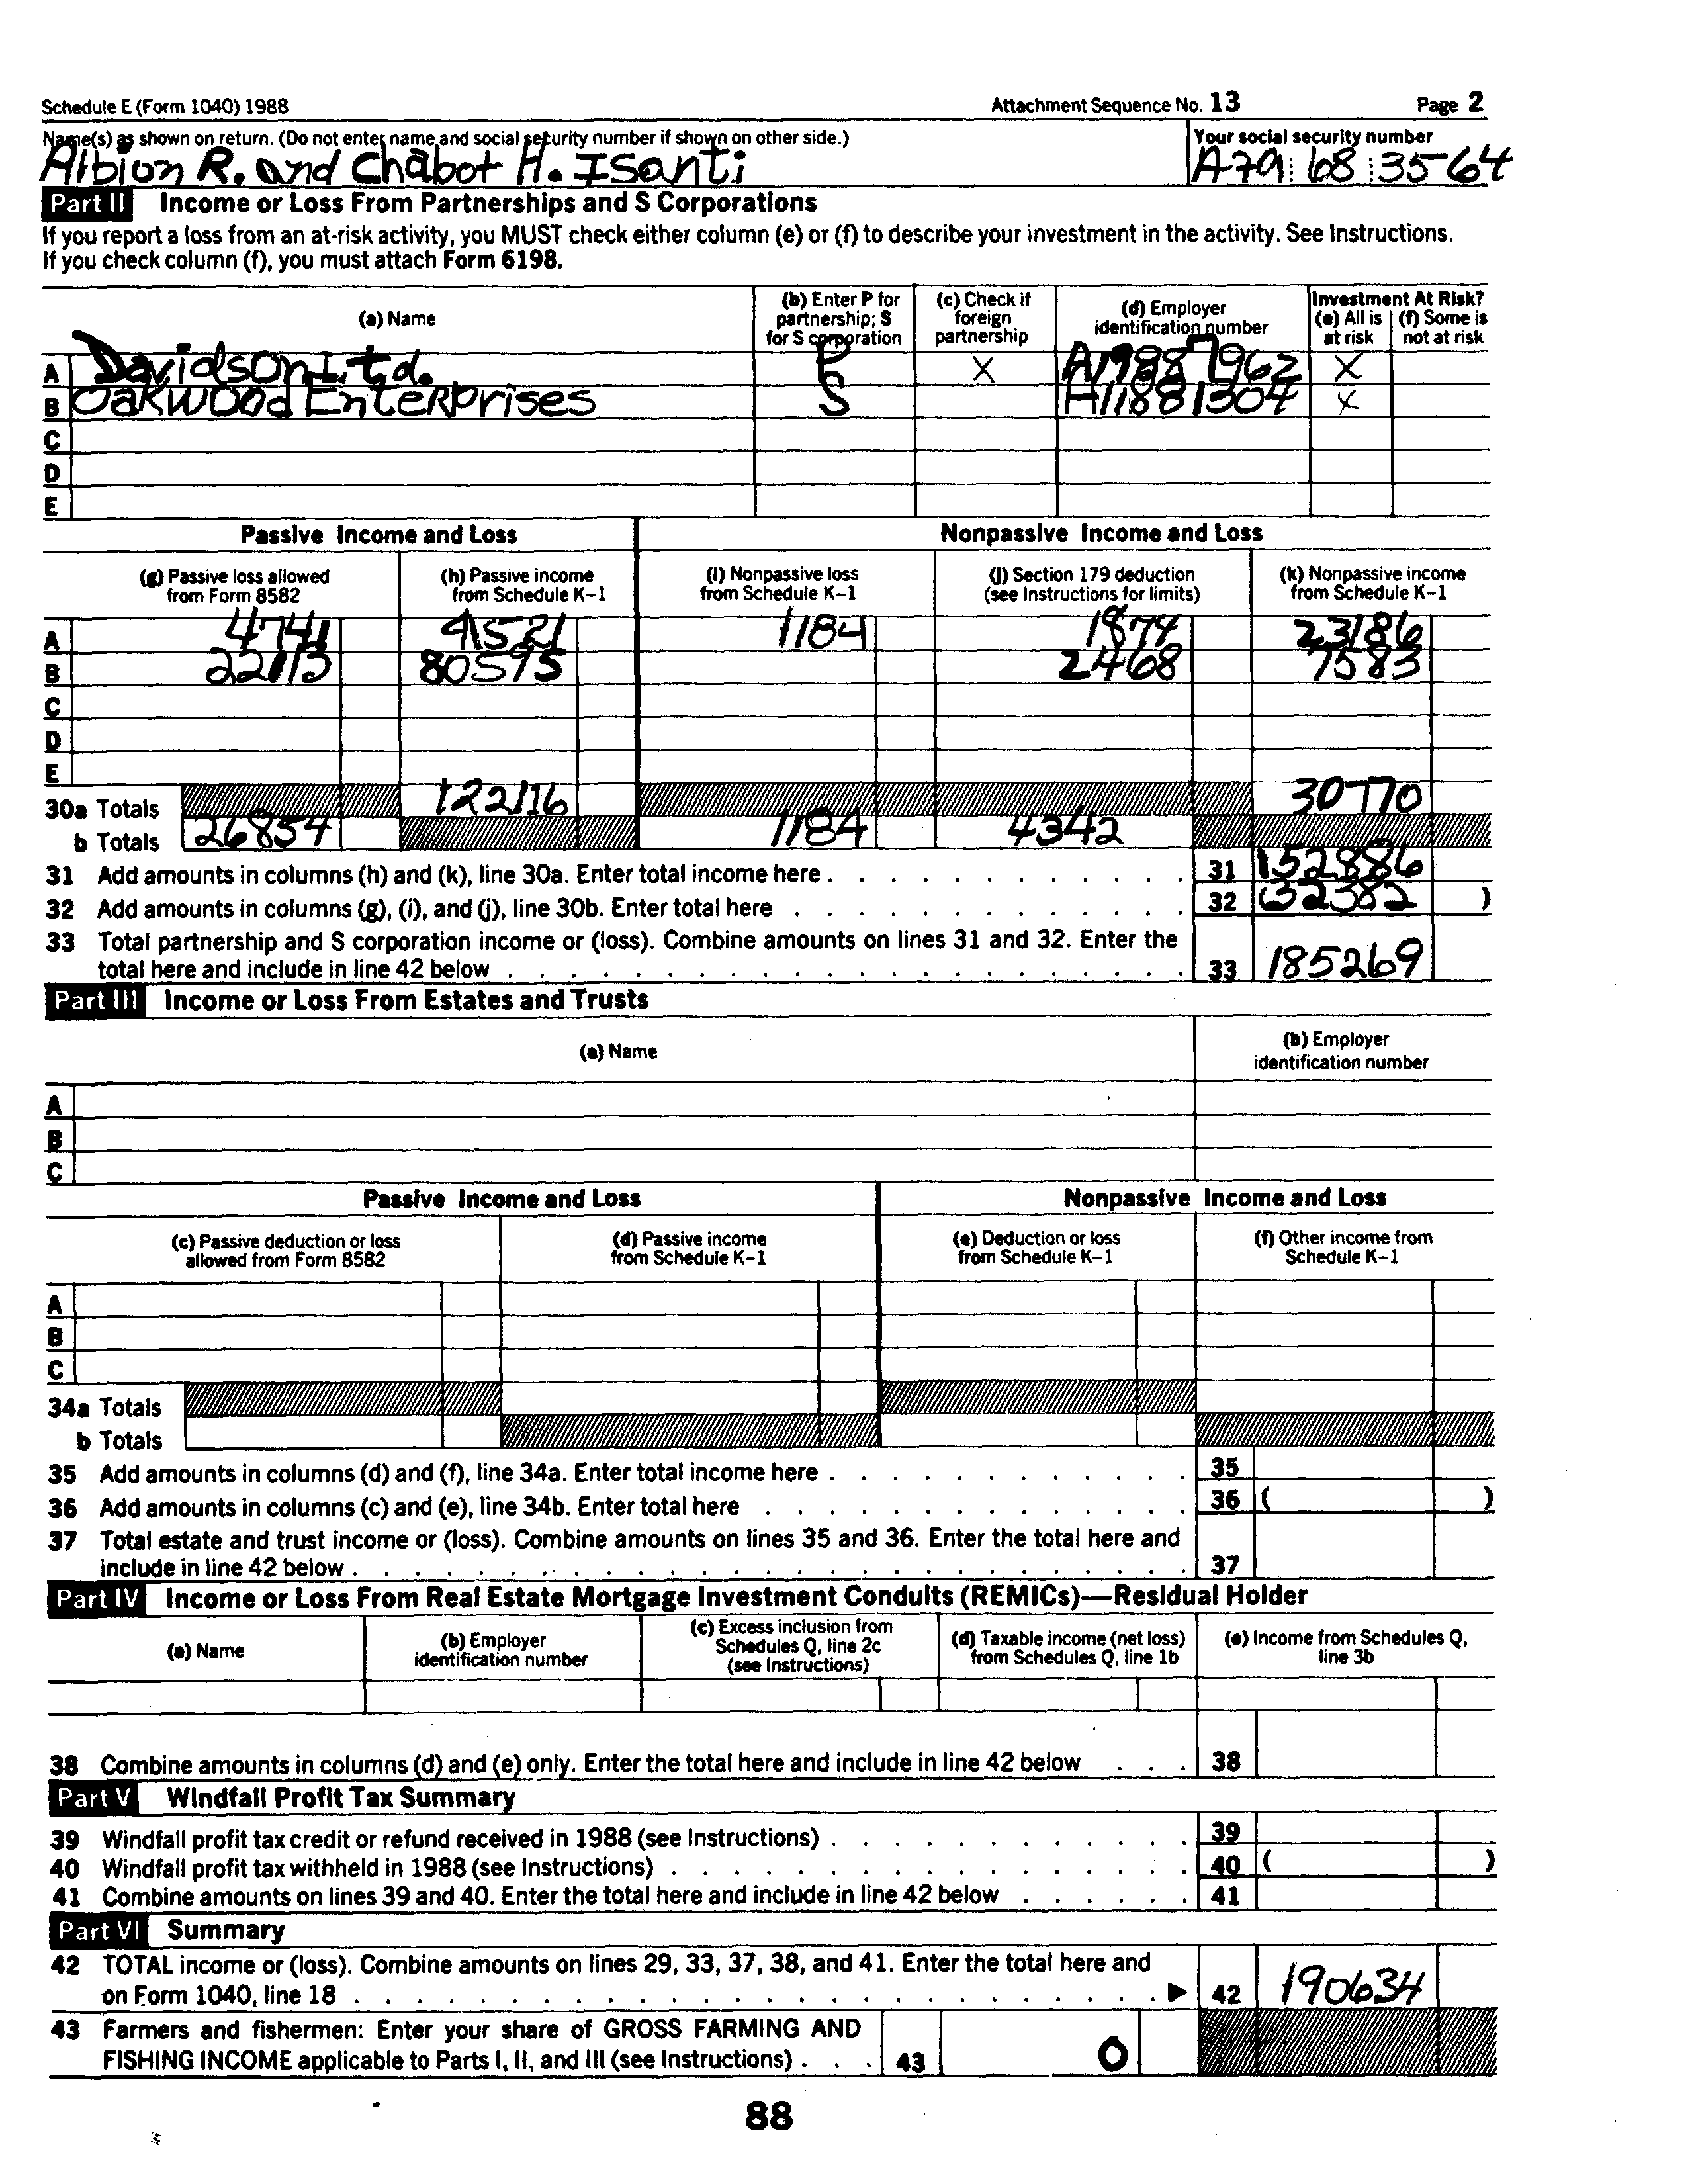 Schedule E (Form 1040) 1988 Attachment Sequence No. 13 Page 2
Name(s) as shown on return. (Do not enter name and social security number if shown on other side.) Your social security number
Albion R. and Chabot H. Isanti A79 68 3564
Part II Income or Loss From Partnerships and S Corporations
If you report a loss from an at-risk activity, you MUST check either column (e) or (f) to describe your investment in the activity. See Instructions.
If you check column (f), you must attach Form 6198.
(a) Name
(b) Enter P for partnership; S for S corporation
(c) Check if foreign partnership
(d) Employer identification number
Investment At Risk?
(e) All is at risk
(f) Some is not at risk
A Davidson Ltd. P X A19887962 X
B Oakwood Enterprises S A11881304 X
C
D
E
Passive Income and Loss Nonpassive Income and Loss
(g) Passive loss allowed from Form 8582
(h) Passive income from Schedule K-1
(i) Nonpassive loss from Schedule K-1
(j) Section 179 deduction (see Instructions for limits)
(k) Nonpassive income from Schedule K-1
A 4741 41521 1184 1874 23186
B 22113 80595 2468 7583
C
D
E
30a Totals 122116 30770
b Totals 26854 1184 4342
31 Add amounts in columns (h) and (k), line 30a. Enter total income here 31 152886
32 Add amounts in columns (g), (i), and (j), line 30b. Enter total here 32 (32382 )
33 Total partnership and S corporation income or (loss). Combine amounts on lines 31 and 32. Enter the
total here and include in line 42 below 33 185269
Part III Income or Loss From Estates and Trusts
(a) Name
(b) Employer identification number
A
B
C
Passive Income and Loss Nonpassive Income and Loss
(c) Passive deduction or loss allowed from Form 8582
(d) Passive income from Schedule K-1
(e) Deduction or loss from Schedule K-1
(f) Other income from Schedule K-1
A
B
C
34a Totals
b Totals
35 Add amounts in columns (d) and (f), line 34a. Enter total income here 35
36 Add amounts in columns (c) and (e), line 34b. Enter total here 36 ( )
37 Total estate and trust income or (loss). Combine amounts on lines 35 and 36. Enter the total here and
include in line 42 below 37
Part IV Income or Loss From Real Estate Mortgage Investment Conduits (REMICs)—Residual Holder
(a) Name
(b) Employer identification number
(c) Excess inclusion from Schedules Q, line 2c (see Instructions)
(d) Taxable income (net loss) from Schedules Q, line 1b
(e) Income from Schedules Q, line 3b
38 Combine amounts in columns (d) and (e) only. Enter the total here and include in line 42 below 38
Part V Windfall Profit Tax Summary
39 Windfall profit tax credit or refund received in 1988 (see Instructions) 39
40 Windfall profit tax withheld in 1988 (see Instructions) 40 ( )
41 Combine amounts on lines 39 and 40. Enter the total here and include in line 42 below 41
Part VI Summary
42 TOTAL income or (loss). Combine amounts on lines 29, 33, 37, 38, and 41. Enter the total here and
on Form 1040, line 18 ▶ 42 190634
43 Farmers and fishermen: Enter your share of GROSS FARMING AND
FISHING INCOME applicable to Parts I, II, and III (see Instructions) 43 0
88